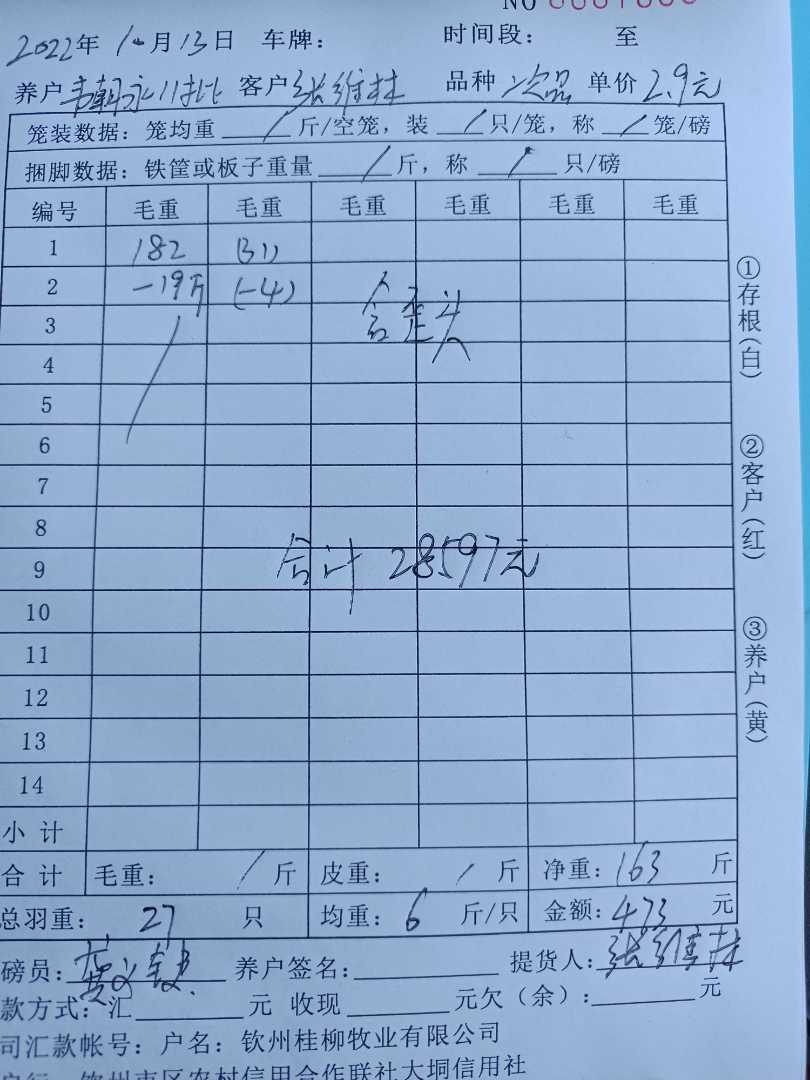 NO
2022年10月13日 车牌: 时间段: 至
养户 韦朝永 客户 张维林 品种 次品 单价 2.9元
笼装数据: 笼均重 / 斤/空笼, 装 / 只/笼, 称 / 笼/磅
捆脚数据: 铁筐或板子重量 / 斤, 称 / 只/磅
编号 毛重 毛重 毛重 毛重 毛重 毛重
1 182 (31)
2 -19斤 (-4) 含歪头
3
4
5
6
7
8
9 合计 28597元
10
11
12
13
14
小计
合计 毛重: / 斤 皮重: / 斤 净重: 163 斤
总羽重: 27 只 均重: 6 斤/只 金额: 473 元
磅员: 养户签名: 提货人: 张维林
款方式: 汇 元 收现 元欠(余): 元
司汇款帐号: 户名: 钦州桂柳牧业有限公司
户行: 钦州市区农村信用合作联社大垌信用社
①存根(白)
②客户(红)
③养户(黄)